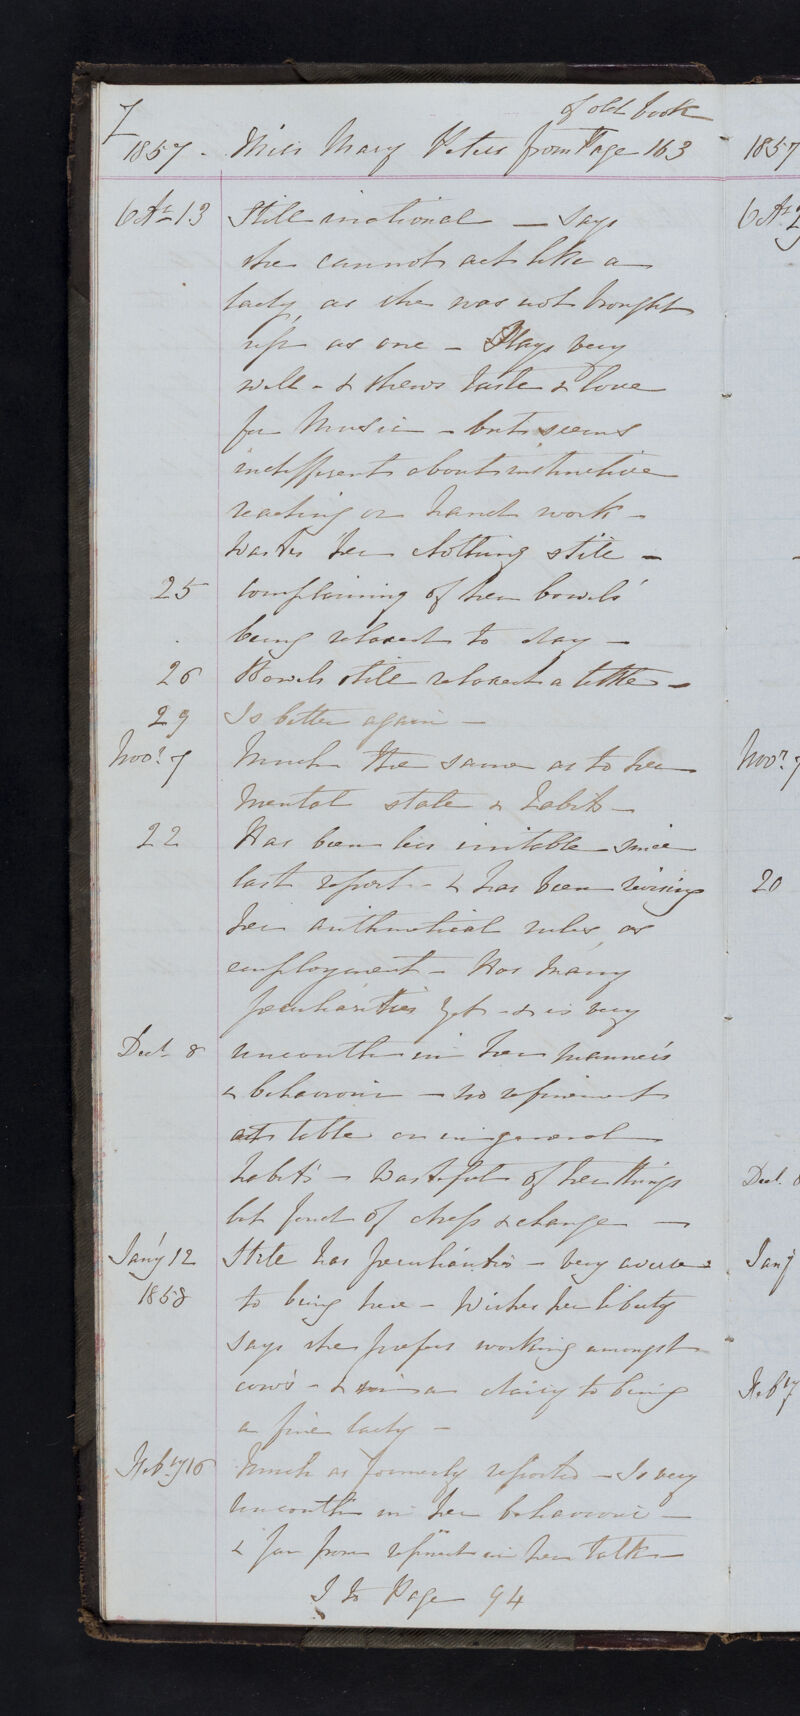 of old book
1857. Miss Mary from Page 163
Oct 13 Still irrational — Says
she cannot act like a
lady, as she was not brought
up as one — Plays very
well - & shews taste & love
for Music — but seems
indifferent about instructive
reading or hand work —
Wastes her clothing still —
25 complaining of her bowels'
being relaxed to day —
26 Bowels still relaxed a little —
29 Is better again —
Novr. 7 Much the same as to her
Mental state & habits —
22 Has been less irritable since
last report - & has been revising
her arithmetical rules, as
employment — Has many
peculiarities yet - & is very
Decr. 8 uncouth in her manners
& behaviour — no refinement
at table or in general
habits — Wasteful of her things
but fond of dress & change —
Jany 12 Still has peculiarities — very averse
1858 to being here — Wishes her liberty
says she prefers working amongst
cows - & in a dairy to being
a fine lady —
Feby 16 Much as formerly reported — Is very
uncouth in her behaviour —
& far from refined in her talk —
to Page 94
1857
Novr. 7
20
Decr. 8
Jany
Feby